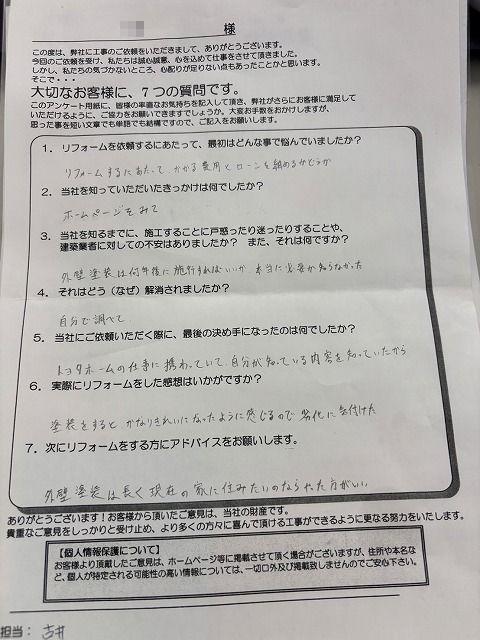 様
この度は、弊社に工事のご依頼をいただきまして、ありがとうございます。
今回のご依頼を受け、私たちは誠心誠意、心を込めて仕事をさせて頂きました。
しかし、私たちの気づかないところ、心配りが足りない点もあったことかと思います。
そこで・・・
大切なお客様に、7つの質問です。
このアンケート用紙に、皆様の率直なお気持ちを記入して頂き、弊社がさらにお客様に満足して
いただけるように、ご協力をお願いできますでしょうか。大変お手数をおかけしますが、
思った事を短い文章でも単語でも結構ですので、ご記入をお願いします。
1. リフォームを依頼するにあたって、最初はどんな事で悩んでいましたか?
リフォームするにあたって、かかる費用とローンを組めるかどうか
2. 当社を知っていただいたきっかけは何でしたか?
ホームページをみて
3. 当社を知るまでに、施工することに戸惑ったり迷ったりすることや、
建築業者に対しての不安はありましたか? また、それは何ですか?
外壁塗装は何年後に施行すればいいか、本当に必要か知らなかった
4. それはどう(なぜ)解消されましたか?
自分で調べて
5. 当社にご依頼いただく際に、最後の決め手になったのは何でしたか?
トヨタホームの仕事に携わっていて、自分が知っている内容を知っていたから
6. 実際にリフォームをした感想はいかがですか?
塗装をすると かなりきれいになったように感じるので 劣化に気付けた
7. 次にリフォームをする方にアドバイスをお願いします。
外壁塗装は長く現在の家に住みたいのならやった方がいい
ありがとうございます!お客様から頂いたご意見は、当社の財産です。
貴重なご意見をしっかりと受け止め、より多くの方々に喜んで頂ける工事ができるように更なる努力をいたします。
【個人情報保護について】
お客様より頂戴したご意見は、ホームページ等に掲載させて頂く場合がございますが、住所や本名な
ど、個人が特定される可能性の高い情報については、一切口外及び掲載致しませんのでご安心下さい。
担当: 吉井